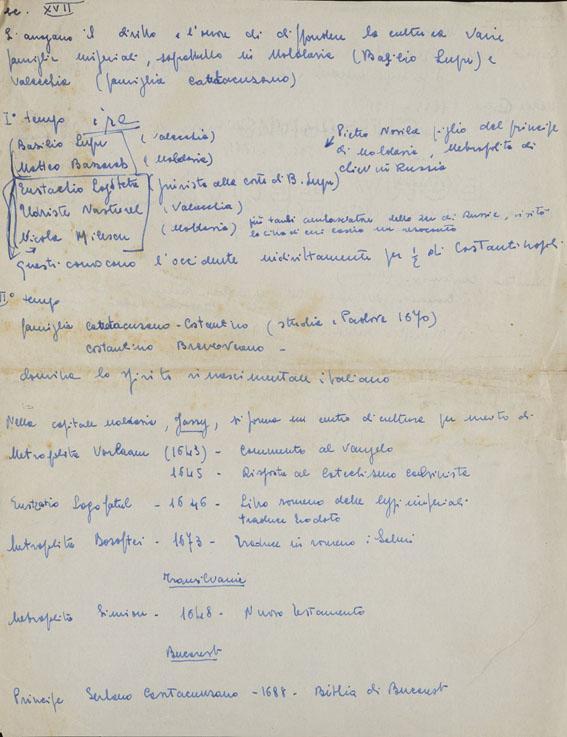 sec. XVII
Si arrogano il diritto e l'onore di diffondere la cultura varie
famiglie imperiali, soprattutto in Moldavia (Basilio Lupu) e
Valacchia (famiglia Catacusano)
I° tempo
(Basilio Lupu (Valacchia)
Matteo Bassarab (Moldavia)
Pietro Movila figlio del principe
di Moldavia, Metropolita di
Chiev in Russia
Eustachio Logoteta (giurista alla corte di B. Lupu)
Udriste Nasturel (Valacchia)
Nicola Milescu (Moldavia) più tardi ambasciatore dello zar di Russia, visitò
la Cina di cui lasciò un resoconto
Questi conoscono l'occidente indirettamente per ½ di Costantinopoli
II° tempo
famiglia Catacusano - Costantino (studia a Padova 1670)
Costantino Brancoveano -
domina lo spirito rinascimentale italiano
Nella capitale moldava, Jassy, si forma un centro di cultura per merito di
Metropolita Varlaam (1643) - Commento al Vangelo
1645 - Risposta al Catechismo calvinista
Eustratio Logofatul - 1646 - Libro romeno delle leggi imperiali
traduce Erodoto
Metropolita Dosoftei - 1673 - Traduce in romeno i Salmi
Transilvania
Metropolita Simion - 1648 - Nuovo Testamento
Bucarest
Principe Serbano Cantacusano - 1688 - Bibbia di Bucarest